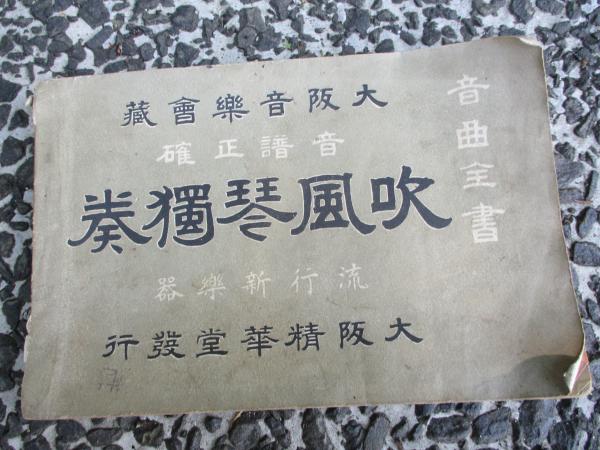 音曲全書
大阪音樂會藏
音譜正確
吹風琴獨奏
流行新樂器
大阪精華堂發行